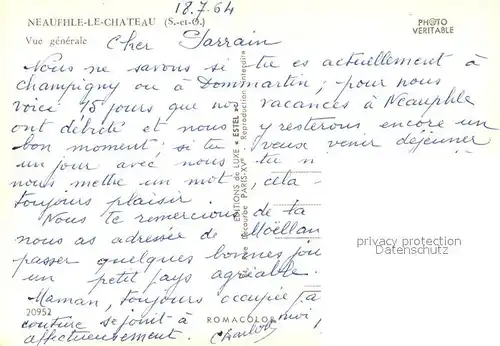 18.7.64
NEAUFHLE-LE-CHATEAU (S.-et-O.)
Vue générale
PHOTO
VERITABLE
Cher Parrain
Nous ne savons si tu es actuellement à
champigny ou à Dommartin ; pour nous
voici 15 jours que no vacances à Neauphle
ont débuté et nous y resterons encore un
bon moment ; si tu veux venir déjeuner
un jour avec nous tu n
nous mettre un mot, cela
toujours plaisir.
Nous te remercions de ta
nous as adressée de Moëllan
passer quelques bonnes jou
un petit pays agréable.
Maman, toujours occupée
couture se joint à moi,
affectueusement.
Charlotte
EDITIONS de LUXE « ESTEL »
PARIS-XVe - Reproduction interdite
20952
ROMACOLOR
privacy protection
Datenschutz